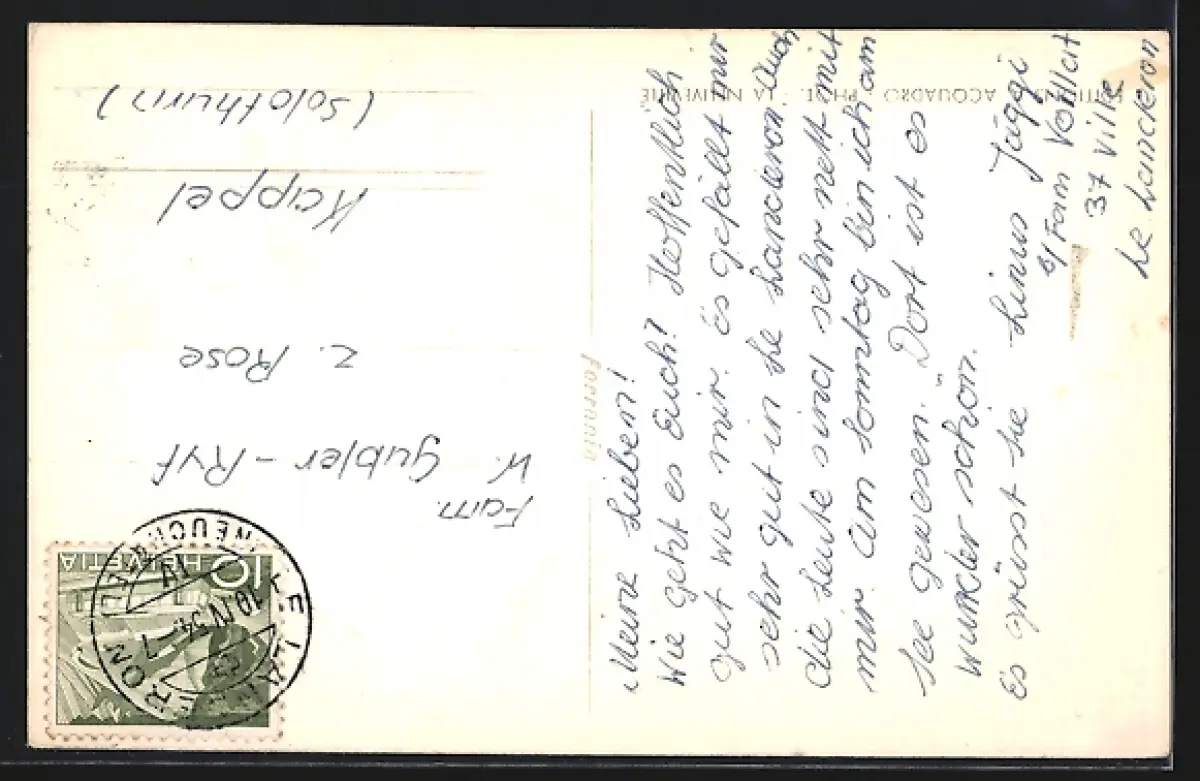 Meine Lieben!
Wie geht es Euch? Hoffentlich
gut wie mir. Es gefällt mir
sehr gut in Le Landeron. Auch
die Leute sind sehr nett mit
mir. Am Sonntag bin ich am
See gewesen. Dort ist es
wunder schön.
Es grüsst sie Linus Jäggi
b/ Fam Vollat
37 Ville
Le Landeron
Fam.
W. Gubler-Ryf
z. Rose
Kappel
(Solothurn)
EDITIONS ACQUADRO PHOT. LA NEUVEVILLE
Ferrania
HELVETIA 10
LE LANDERON
(NEUCHATEL)